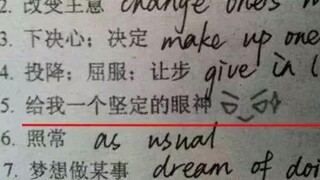 2. 改变主意 change one's m
3. 下决心；决定 make up one
4. 投降；屈服；让步 give in (
5. 给我一个坚定的眼神
6. 照常 as usual
7. 梦想做某事 dream of doi